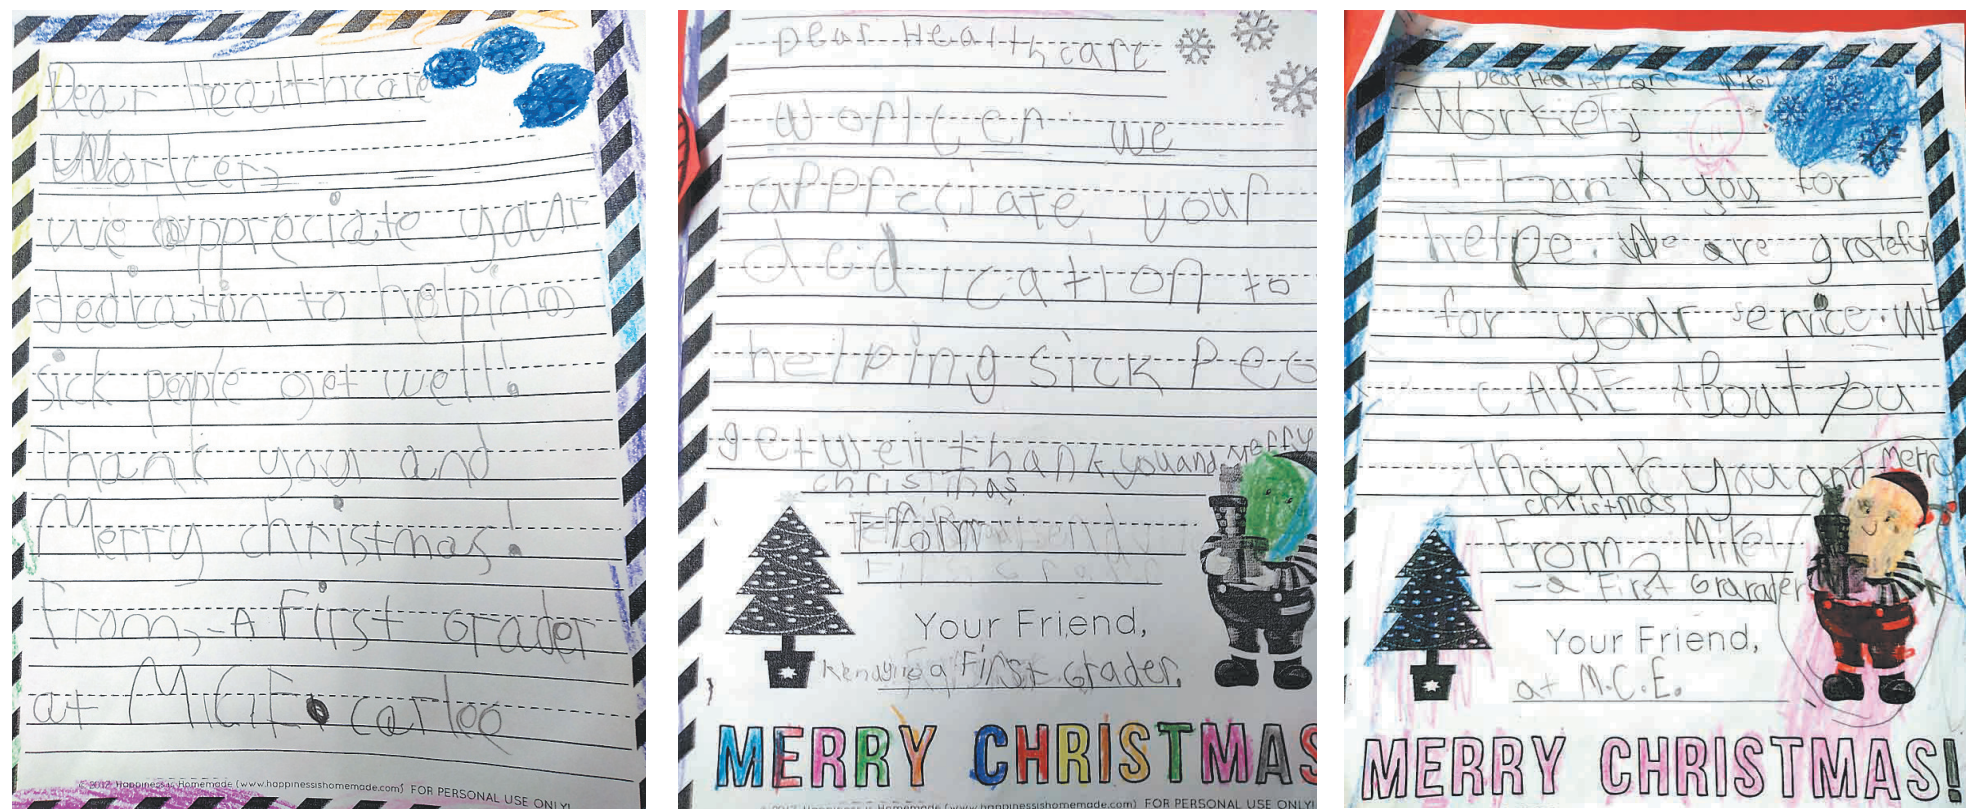 Dear Healthcare
Worker,
we appreciate your
dedication to helping
sick people get well!
Thank your and
Merry christmas!
From, - A First Grader
at M.C.E. carlee
© 2017 Happiness is Homemade (www.happinessishomemade.com) FOR PERSONAL USE ONLY!
Dear Healthcare
worker we
appreciate your
dedication to
helping sick Peo
get well thank you and Merry
christmas
From
Your Friend,
a First Grader.
MERRY CHRISTMAS
© 2017 Happiness is Homemade (www.happinessishomemade.com) FOR PERSONAL USE ONLY!
Dear Healthcare Mikel
Worker,
Thank you for
helpe. We are grateful
for your service. WE
CARE About you
Thank you and merry
christmas
From, Mikel
- a First Grarader
Your Friend,
at M.C.E.
MERRY CHRISTMAS!